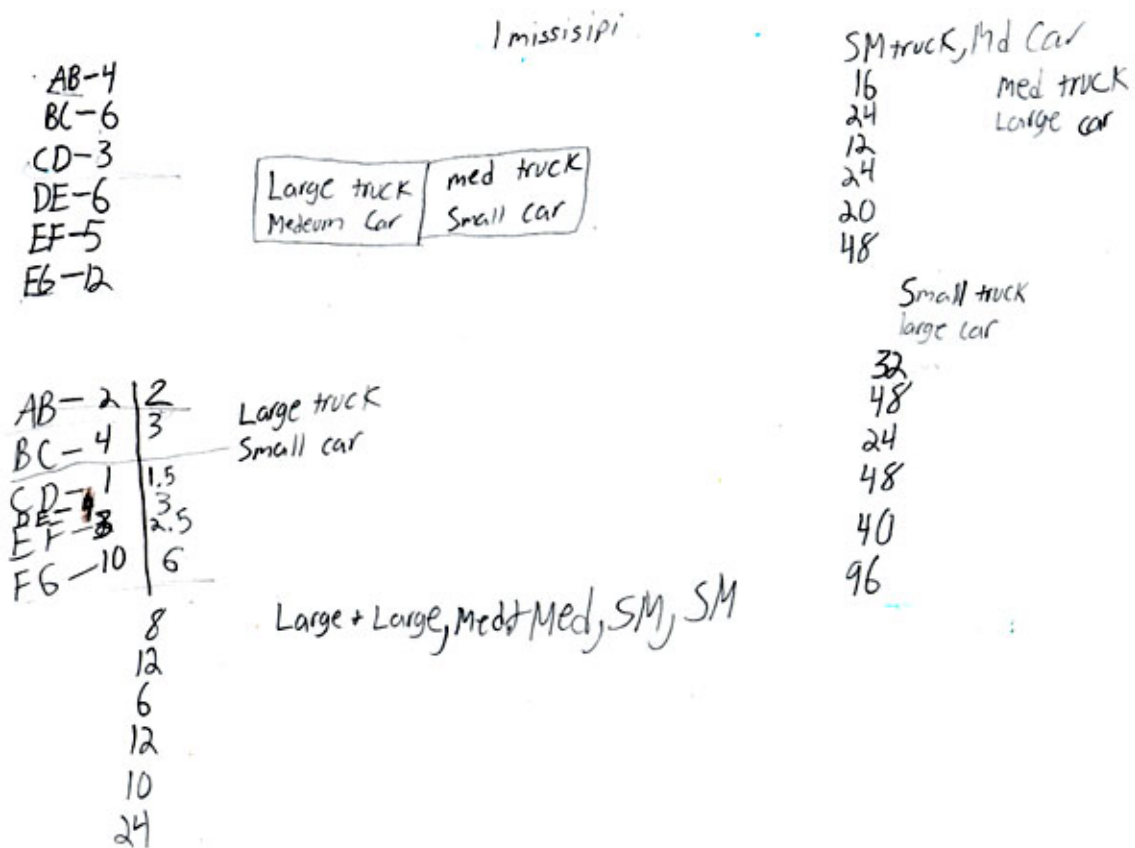 1 missisipi
AB-4
BC-6
CD-3
DE-6
EF-5
FG-12
Large truck
Medeum Car
med truck
Small car
SM truck, Md Car
16
24
12
24
20
48
med truck
Large car
Small truck
large car
32
48
24
48
40
96
AB-2 | 2
BC-4 | 3
CD-1 | 1.5
DE- | 3
EF- | 2.5
FG-10 | 6
Large truck
Small car
8
12
6
12
10
24
Large + Large, Med + Med, SM, SM